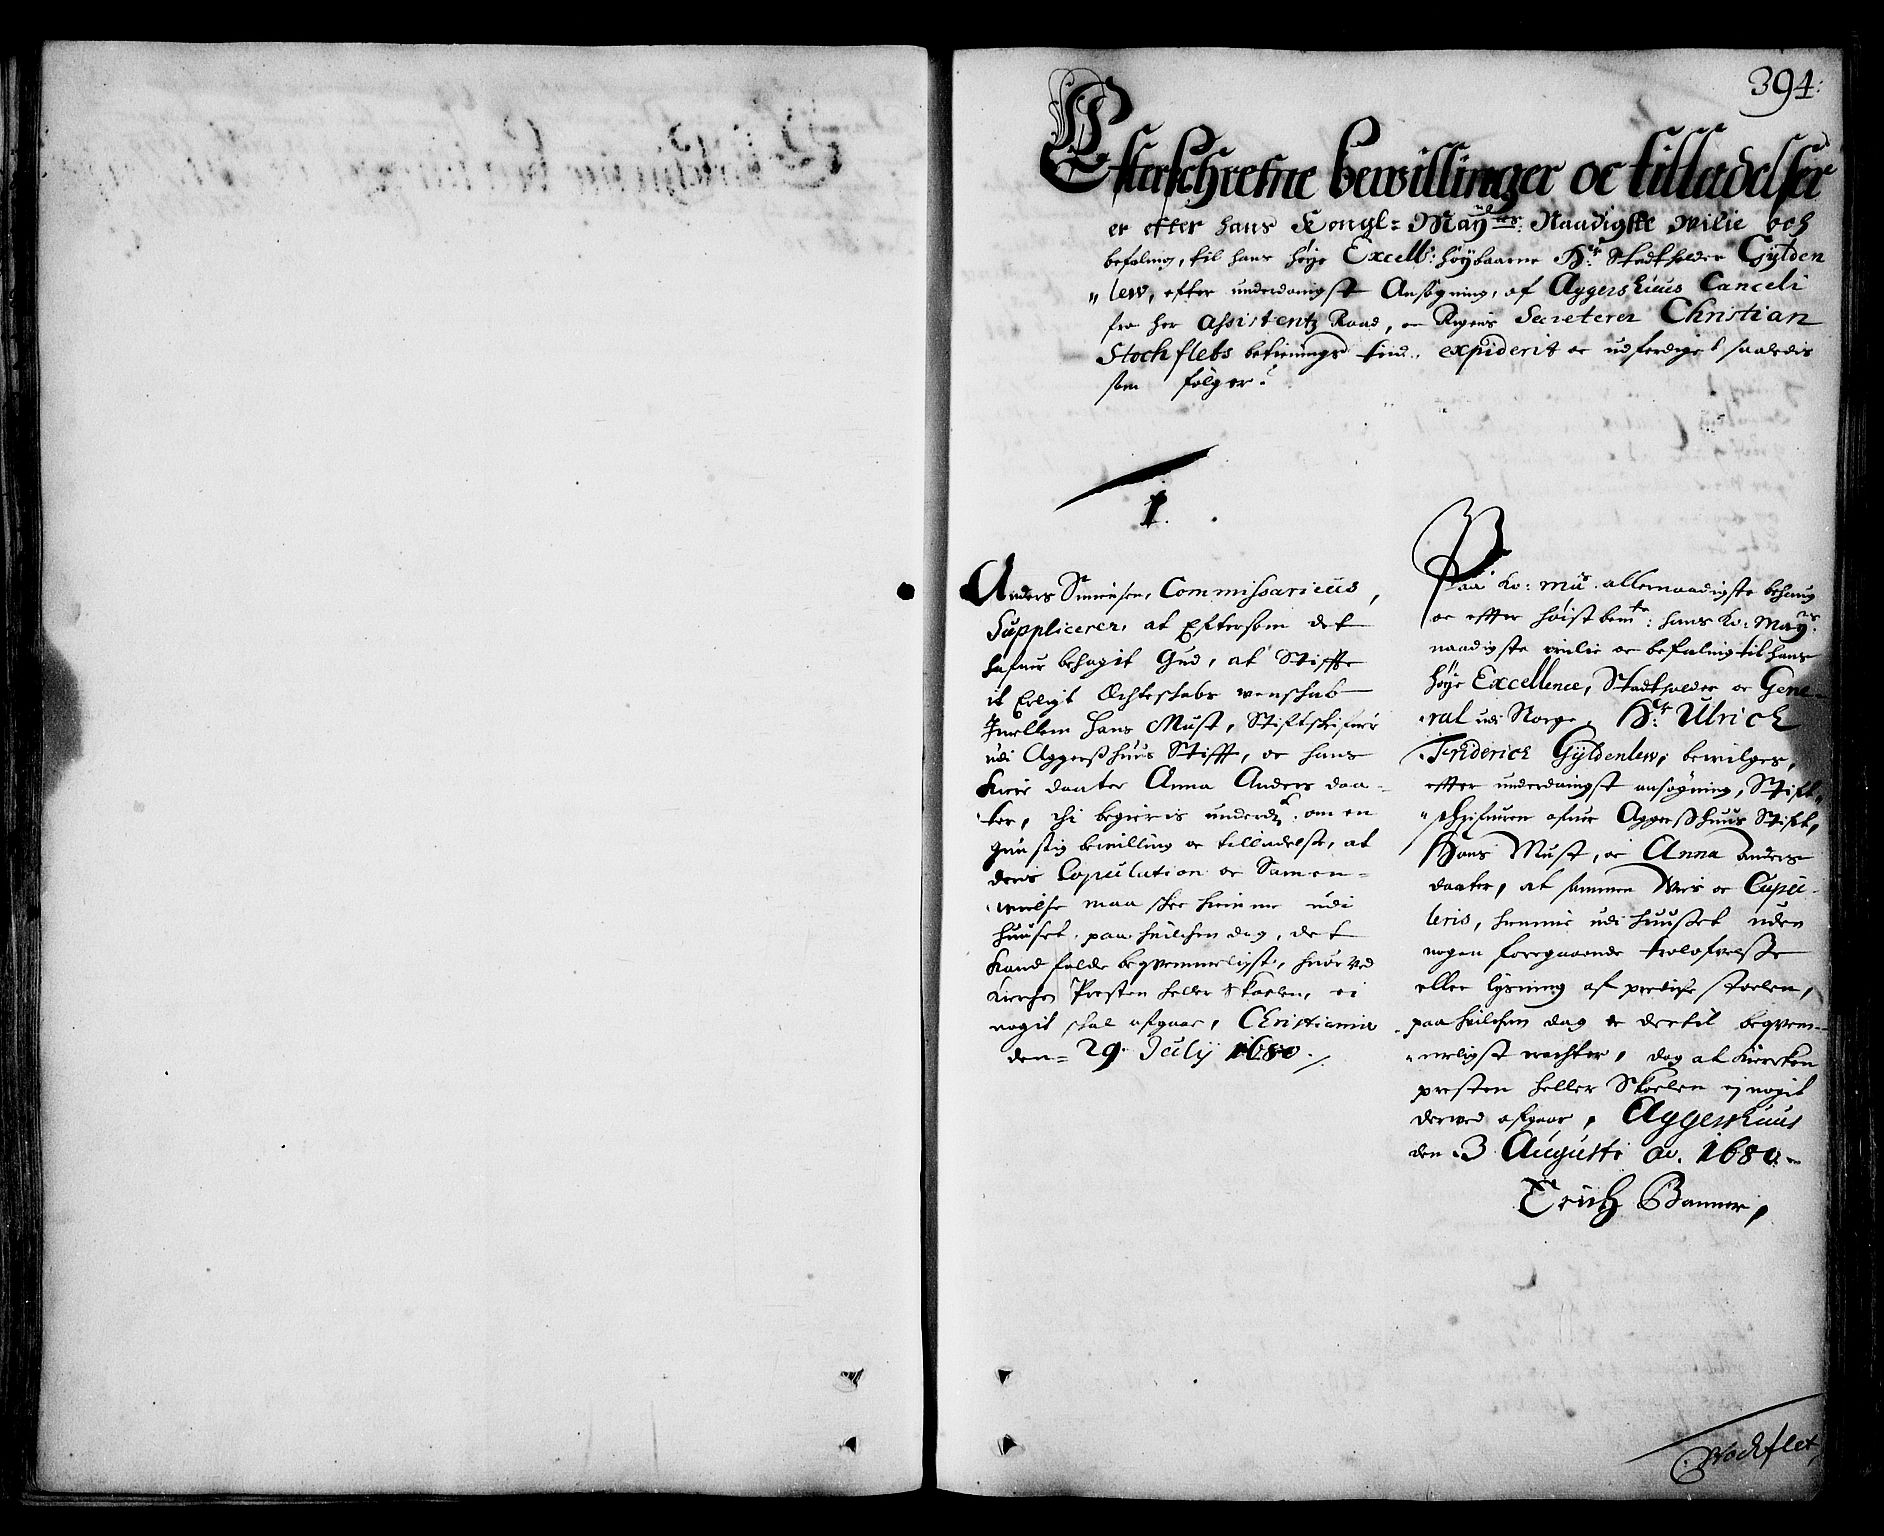 394.
Efterschrefne bewillinger oc tilladelser
er efter hans Kongl: Mayts: Naadigste Vilie och
befaling, til hans høye Excell: høybaarne Hr: Stadtholder Gylden
lew, efter underdanigst Ansøgning, af Aggershuus Canceli
fra her Assistentz Raad, oc Rigens Secreterer Christian
Stochflets betienings tid, expiderit oc udferdiget saaledis
som følger:
1.
Anders Simensen, Commissarieus,
Supplicerer, at Eftersom det
hafuer behagit Gud, at Stiffte
it Erligt Echteskabs wenschab
Imellem Hans Must, Stiftschrifuer
udi Aggerßhuus Stifft, oc hans
Kiere daater Anna Anders daa-
ter, thi begieris underdt: om en
gunstig bewilling oc tilladelse, at
deris Copulation oc Samen-
wielse maa skee hiemme udi
huuset, paa huilchen dag, det
Kand falde beqvemmeligst, huorved
Kierchen Presten heller Skoelen, ei
nogit skal afgaar, Christiania
den 29 July 1680.
Paa Ko: Mts: allernaadigste behaug
oc effter høist bemte: hans Ko: Mayts:
naadigste vilie oc befaling til hans
høye Excellence, Stadtholder oc Gene-
ral udi Norge, Hr: Ulrich
Friderich Gyldenlew, bewilges,
effter underdanigst ansøgning, Stift-
schrifueren ofuer Aggerßhuus Stift,
Hans Must, oc Anna Anders
daater, at sammen Vies oc Copu-
leris, hiemme udi huuset uden
nogen foregaaende trolofvelse
eller lysning af predike stoelen,
paa huilchen dag de dertil beqvem-
meligst eragter, dog at Kiercken
presten heller Skoelen ej nogit
derved afgaar, Aggershuus
den 3 Augusti Ao. 1680.
Erich Banner,
Stockflet